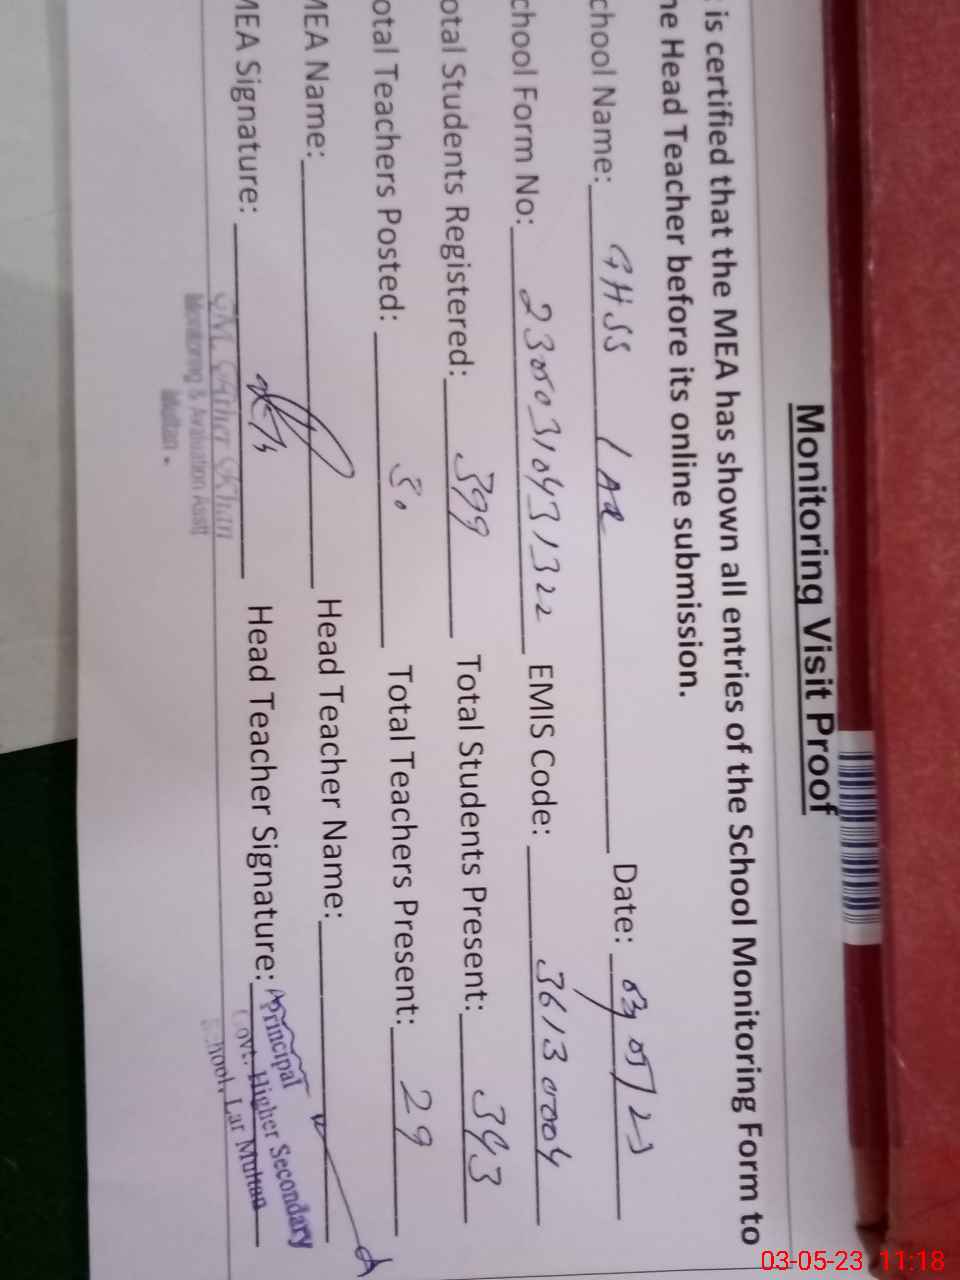 Monitoring Visit Proof
is certified that the MEA has shown all entries of the School Monitoring Form to
he Head Teacher before its online submission.
chool Name: GHSS Lar Date: 03/05/23
chool Form No: 23050310431322 EMIS Code: 36130004
otal Students Registered: 399 Total Students Present: 343
otal Teachers Posted: 30 Total Teachers Present: 29
MEA Name: Head Teacher Name:
MEA Signature: Head Teacher Signature:
Khan
Monitoring & Evaluation Asstt
Multan.
Principal
Govt. Higher Secondary
School, Lar Multan
03-05-23 11:18